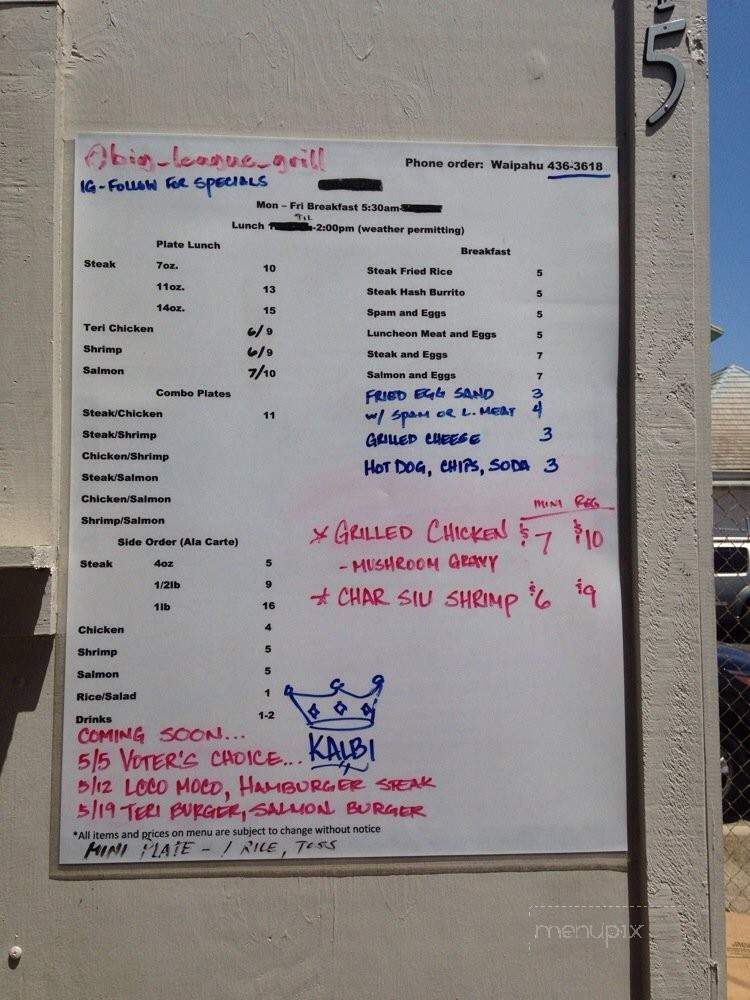 5
@big_league_grill
IG-FOLLOW FOR SPECIALS
Phone order: Waipahu 436-3618
Mon – Fri Breakfast 5:30am-
Lunch TIL -2:00pm (weather permitting)
Plate Lunch
Steak 7oz. 10
11oz. 13
14oz. 15
Teri Chicken 6/9
Shrimp 6/9
Salmon 7/10
Combo Plates
Steak/Chicken 11
Steak/Shrimp
Chicken/Shrimp
Steak/Salmon
Chicken/Salmon
Shrimp/Salmon
Side Order (Ala Carte)
Steak 4oz 5
1/2lb 9
1lb 16
Chicken 4
Shrimp 5
Salmon 5
Rice/Salad 1
Drinks 1-2
Breakfast
Steak Fried Rice 5
Steak Hash Burrito 5
Spam and Eggs 5
Luncheon Meat and Eggs 5
Steak and Eggs 7
Salmon and Eggs 7
FRIED EGG SAND 3
W/ SPAM OR L. MEAT 4
GRILLED CHEESE 3
HOT DOG, CHIPS, SODA 3
MINI REG
* GRILLED CHICKEN $7 $10
- MUSHROOM GRAVY
* CHAR SIU SHRIMP $6 $9
COMING SOON...
5/5 VOTER'S CHOICE... KALBI
5/12 LOCO MOCO, HAMBURGER STEAK
5/19 TERI BURGER, SALMON BURGER
*All items and prices on menu are subject to change without notice
MINI PLATE - 1 RICE, TOSS
menupix